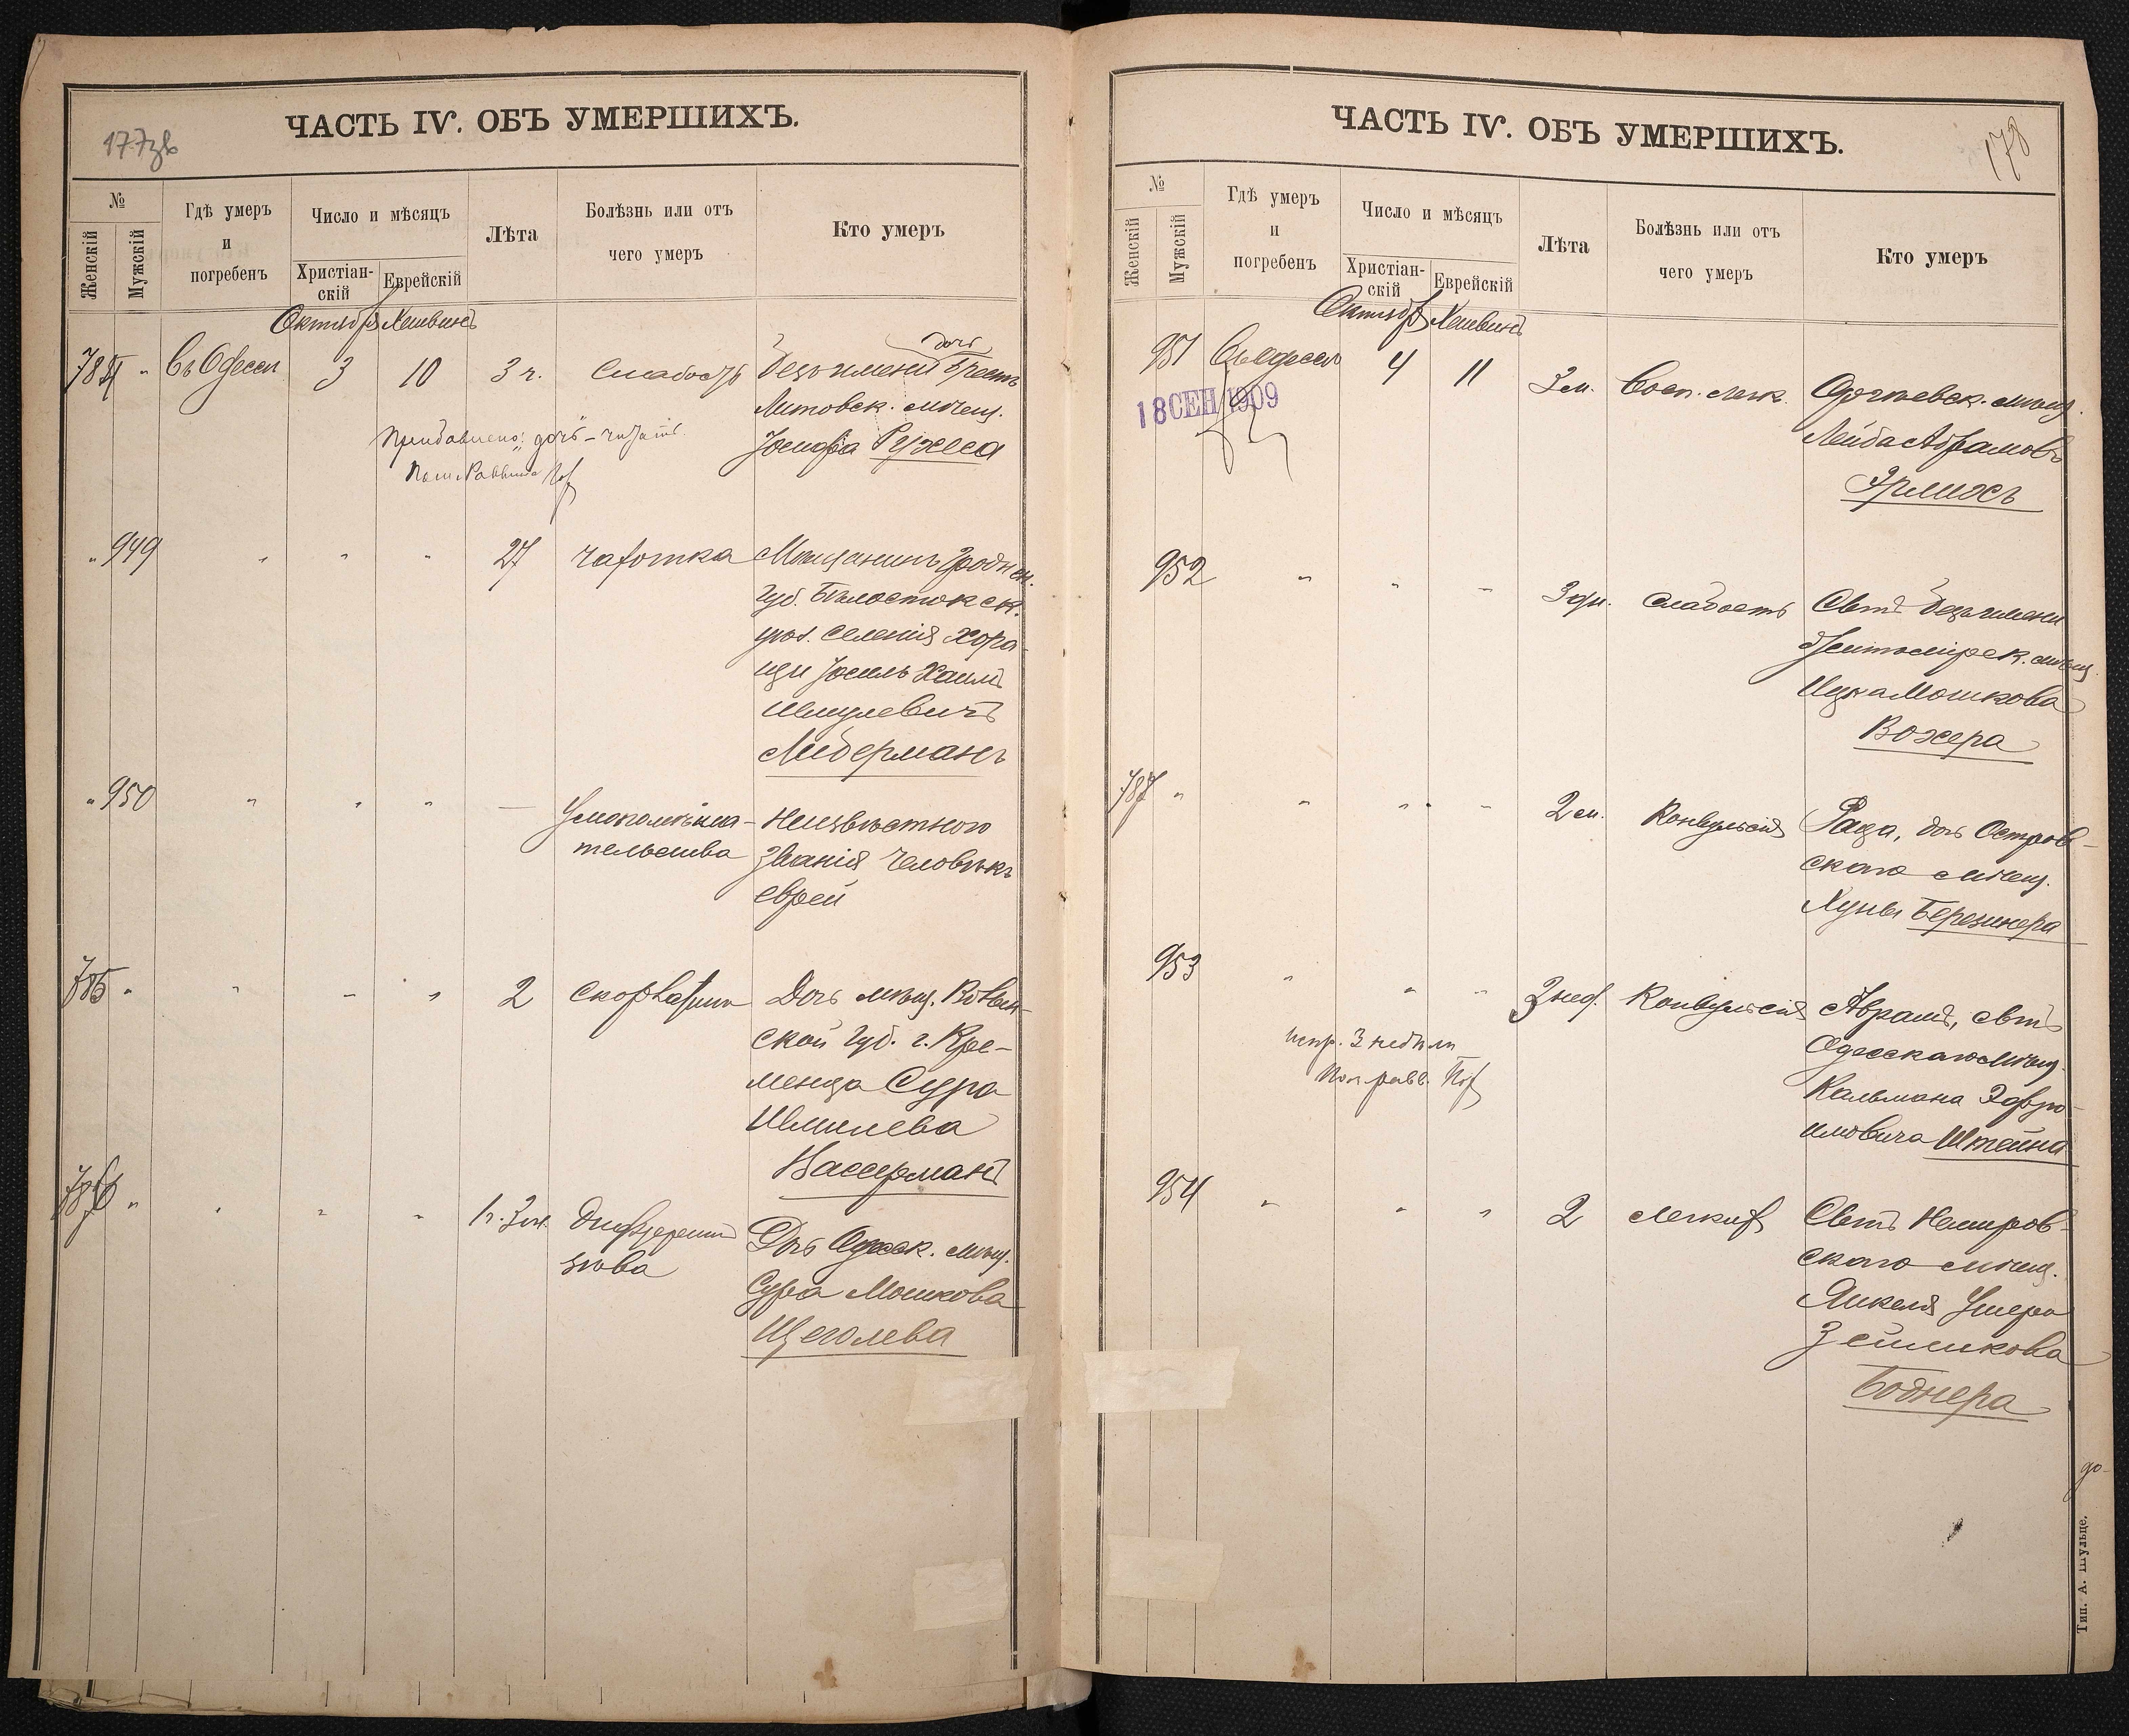 177зв
ЧАСТЬ IV. ОБЪ УМЕРШИХЪ.
№
Женскій
Мужскій
Гдѣ умеръ
и
погребенъ
Число и мѣсяцъ
Христіан-
скій
Еврейскій
Лѣта
Болѣзнь или отъ
чего умеръ
Кто умеръ
Октября Хешвинъ
784 " Въ Одессѣ 3 10 3 г. Слабость Безъ имени дочь Брестъ
Литовск. мѣщ.
Іосифа Ружеса
Прибавлено: "дочь" – читать.
" 949 " " " 27 Чахотка Мѣщанинъ Гроднен.
Губ. Бѣлостокск.
уѣз. селенія Хоро-
щи Іосель Хаимъ
Шмулевичъ
Лидерманъ
" 950 " " " — Умопомѣша-
тельства
Неизвѣстного
званія человѣкъ
еврей
785 " " " " 2 Дочь мѣщ. Волын-
ской Губ. г. Кре-
менца Сура
Шмилева
Вассерманъ
786 " " " " 1 г. 3 м. зѣва
Дочь Одесск. мѣщ.
Сура Мошкова
Щеголева
178
ЧАСТЬ IV. ОБЪ УМЕРШИХЪ.
№
Женскій
Мужскій
Гдѣ умеръ
и
погребенъ
Число и мѣсяцъ
Христіан-
скій
Еврейскій
Лѣта
Болѣзнь или отъ
чего умеръ
Кто умеръ
Октября Хешвинъ
951 Въ Одессѣ 4 11 3 м. Восп. легк. мѣщ.
Лейба Абрамовъ
Эрлихъ
18 СЕН 1909
952 " " " 3 дн. Слабость Сынъ безъ имени
Житомірск. мѣщ.
Ицка Мошкова
Вохера
787 " " " " 2 м. Конвульсія дочь Остров-
скаго мѣщ.
Хуны Березинера
953 " " " 3 нед. Конвульсія Абрамъ, сынъ
Одесскаго мѣщ.
Кельмана Эфро-
имовича Штейна
испр. 3 недѣли
954 " " " 2 легкихъ Сынъ Немиров-
скаго мѣщ.
Янкеля Ушера
Зейликова
Боднера
до-
Тип. А. Шульце.